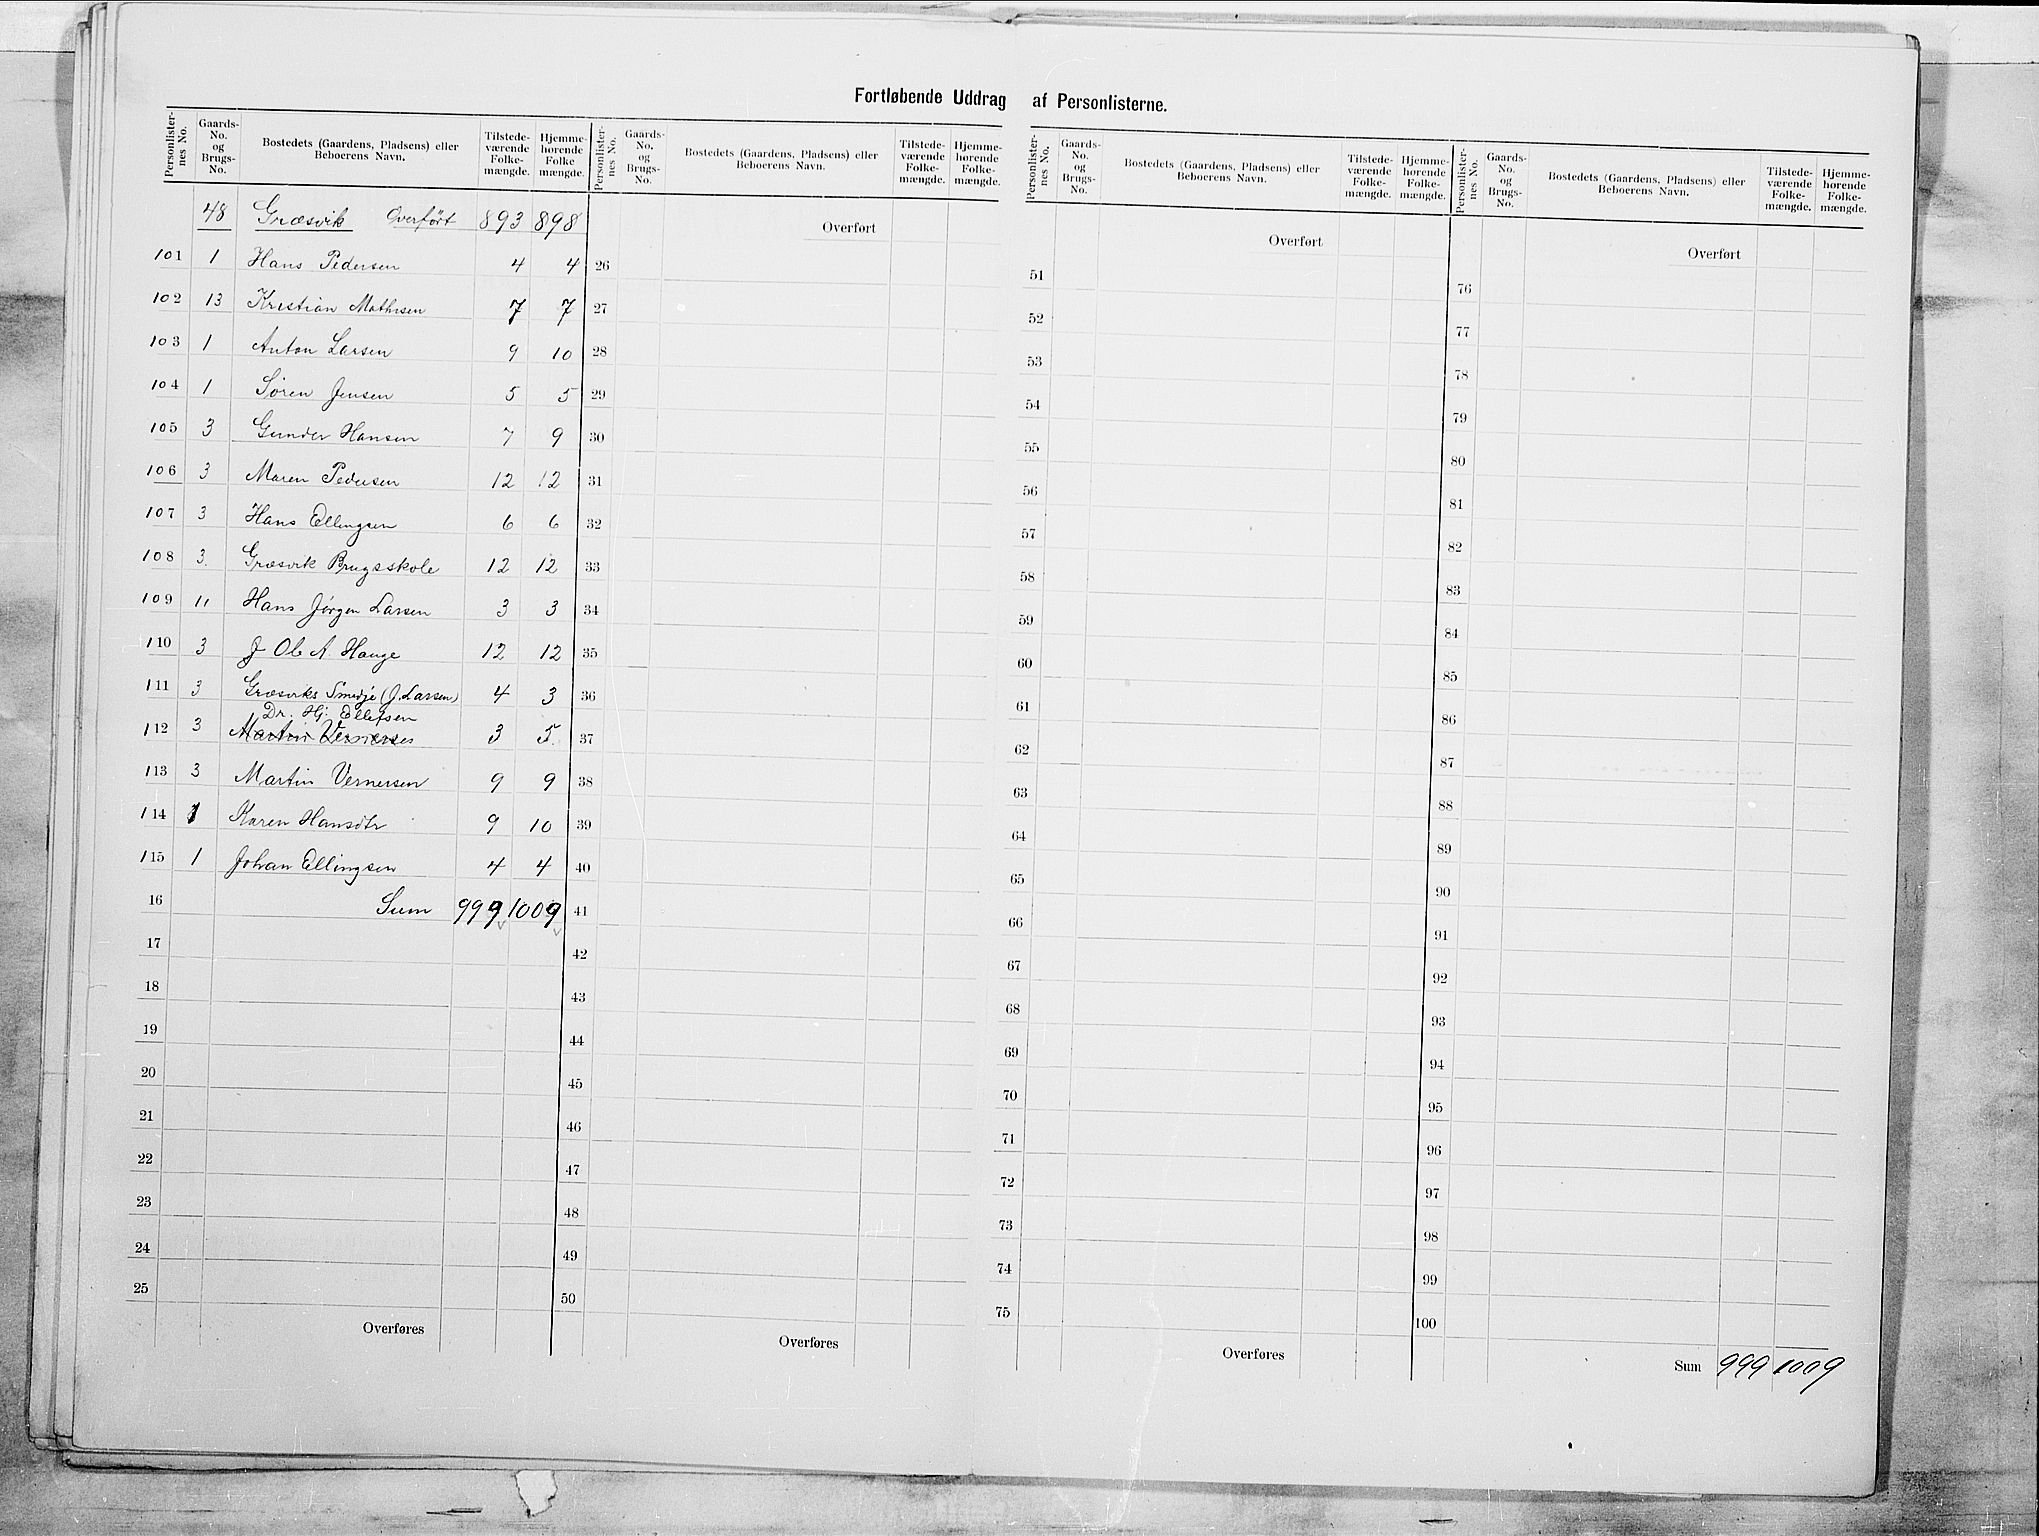 Fortløbende Uddrag af Personlisterne.
Personlister-nes No. Gaards-No. og Brugs-No. Bostedets (Gaardens, Pladsens) eller Beboerens Navn. Tilstede-værende Folke-mængde. Hjemme-hørende Folke mængde.
48 Græsvik Overført 893 898
101 1 Hans Pedersen 4 4
102 13 Kristian Mathisen 7 7
103 1 Anton Larsen 9 10
104 1 Søren Jensen 5 5
105 3 Gunder Hansen 7 9
106 3 Maren Pedersen 12 12
107 3 Hans Ellingsen 6 6
108 3. Græsvik Brugsskole 12 12
109 11 Hans Jørgen Larsen 3 3
110 3 J Ol. A. Hauge 12 12
111 3 Græsviks Smedje (J. Larsen) 4 3
Dr. Hj. Ellefsen
112 3 Martin Vernersen 3 5
113 3 Martin Vernersen 9 9
114 1 Karen Hansdtr 9 10
115 1 Johan Ellingsen 4 4
16 Sum 999 1009
17
18
19
20
21
22
23
24
25
Overføres
Personlister-nes No. Gaards-No. og Brugs-No. Bostedets (Gaardens, Pladsens) eller Beboerens Navn. Tilstede-værende Folke-mængde. Hjemme-hørende Folke-mængde.
Overført
26
27
28
29
30
31
32
33
34
35
36
37
38
39
40
41
42
43
44
45
46
47
48
49
50
Overføres
Personlister-nes No. Gaards-No. og Brugs-No. Bostedets (Gaardens, Pladsens) eller Beboerens Navn. Tilstede-værende Folke-mængde. Hjemme-hørende Folke-mængde.
Overført
51
52
53
54
55
56
57
58
59
60
61
62
63
64
65
66
67
68
69
70
71
72
73
74
75
Overføres
Personlister-nes No. Gaards-No. og Brugs-No. Bostedets (Gaardens, Pladsens) eller Beboerens Navn. Tilstede-værende Folke-mængde. Hjemme-hørende Folke-mængde.
Overført
76
77
78
79
80
81
82
83
84
85
86
87
88
89
90
91
92
93
94
95
96
97
98
99
100
Sum 999 1009